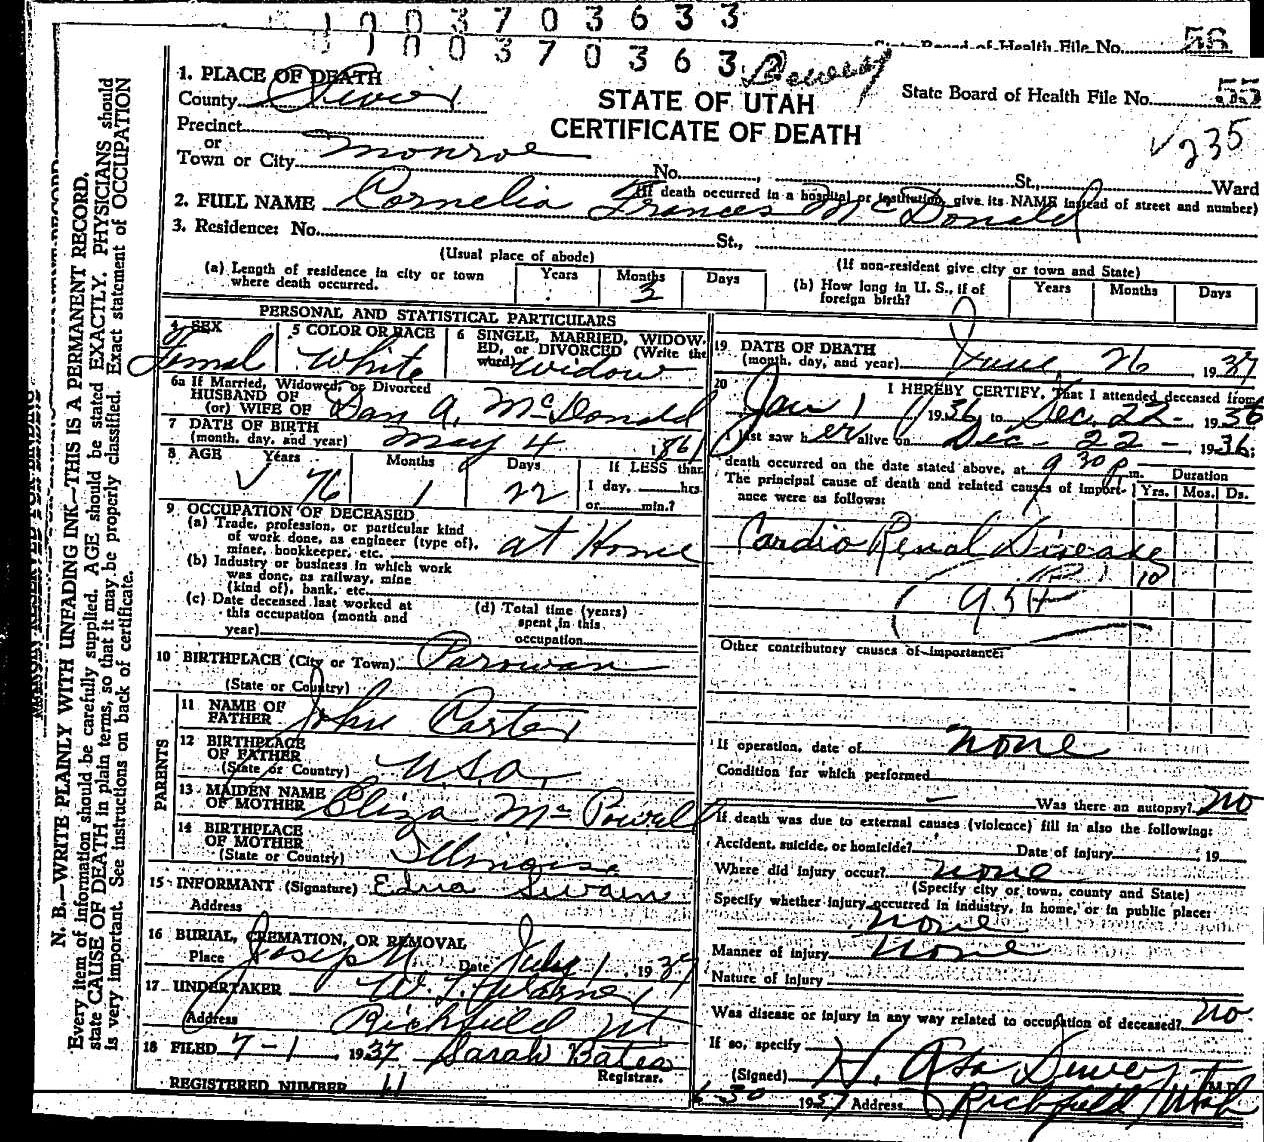 1003703633
1003703633
State Board of Health File No. 56
Dewey
1. PLACE OF DEATH
County Sevier
STATE OF UTAH
CERTIFICATE OF DEATH
State Board of Health File No. 55
235
Precinct
or
Town or City Monroe No. , St., Ward
(If death occurred in a hospital or institution, give its NAME instead of street and number)
2. FULL NAME Cornelia Frances McDonald
3. Residence: No. St.,
(Usual place of abode) (If non-resident give city or town and State)
(a) Length of residence in city or town where death occurred. Years Months 3 Days
(b) How long in U. S., if of foreign birth? Years Months Days
PERSONAL AND STATISTICAL PARTICULARS
4 SEX Femal
5 COLOR OR RACE White
6 SINGLE, MARRIED, WIDOWED, or DIVORCED (Write the word) Widow
6a If Married, Widowed, or Divorced
HUSBAND OF
(or) WIFE OF Dan A. McDonald
7 DATE OF BIRTH
(month, day, and year) May 4 1861
8 AGE Years 76 Months 1 Days 22 If LESS than
1 day, hrs.
or min.?
9 OCCUPATION OF DECEASED
(a) Trade, profession, or particular kind
of work done, as engineer (type of),
miner, bookkeeper, etc. at Home
(b) Industry or business in which work
was done, as railway, mine
(kind of), bank, etc.
(c) Date deceased last worked at
this occupation (month and
year)
(d) Total time (years)
spent in this
occupation
10 BIRTHPLACE (City or Town) Parowan
(State or Country)
PARENTS
11 NAME OF
FATHER John Carter
12 BIRTHPLACE
OF FATHER
(State or Country) U.S.A.
13 MAIDEN NAME
OF MOTHER Eliza Mc Powell
14 BIRTHPLACE
OF MOTHER
(State or Country)
15 INFORMANT (Signature) Edna Swain
Address
16 BURIAL, CREMATION, OR REMOVAL
Place Joseph Date July 1, 1937
17 UNDERTAKER W. J. Warner
Address Richfield Ut.
18 FILED 7-1 1937 Sarah Bates
Registrar.
REGISTERED NUMBER 11
19 DATE OF DEATH
(month, day, and year) June 26 1937
20 I HEREBY CERTIFY, That I attended deceased from
Jan 1 1936 to Dec. 22- 1936
I last saw her alive on Dec - 22 - 1936;
death occurred on the date stated above, at 9 30 p m.
The principal cause of death and related causes of importance were as follows:
Duration
Yrs. Mos. Ds.
Cardio Renal Disease
10
95A
Other contributory causes of importance:
If operation, date of none
Condition for which performed
Was there an autopsy? no
If death was due to external causes (violence) fill in also the following:
Accident, suicide, or homicide? Date of injury , 19
Where did injury occur? none
(Specify city or town, county and State)
Specify whether injury occurred in industry, in home, or in public place:
none
Manner of injury none
Nature of injury
Was disease or injury in any way related to occupation of deceased? no
If so, specify
(Signed) H. Asa Dewey M.D.
6-30 1937 Address Richfield Utah
N. B.—WRITE PLAINLY WITH UNFADING INK—THIS IS A PERMANENT RECORD.
Every item of information should be carefully supplied. AGE should be stated EXACTLY. PHYSICIANS should
state CAUSE OF DEATH in plain terms, so that it may be properly classified. Exact statement of OCCUPATION
is very important. See instructions on back of certificate.